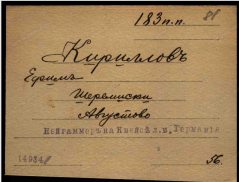 183 п.п. 81
Кирилловъ
Ефимъ
Шеремиски
Августово
Нейгаммеръ на Квейсѣ л.н, Германия
14934/
56.